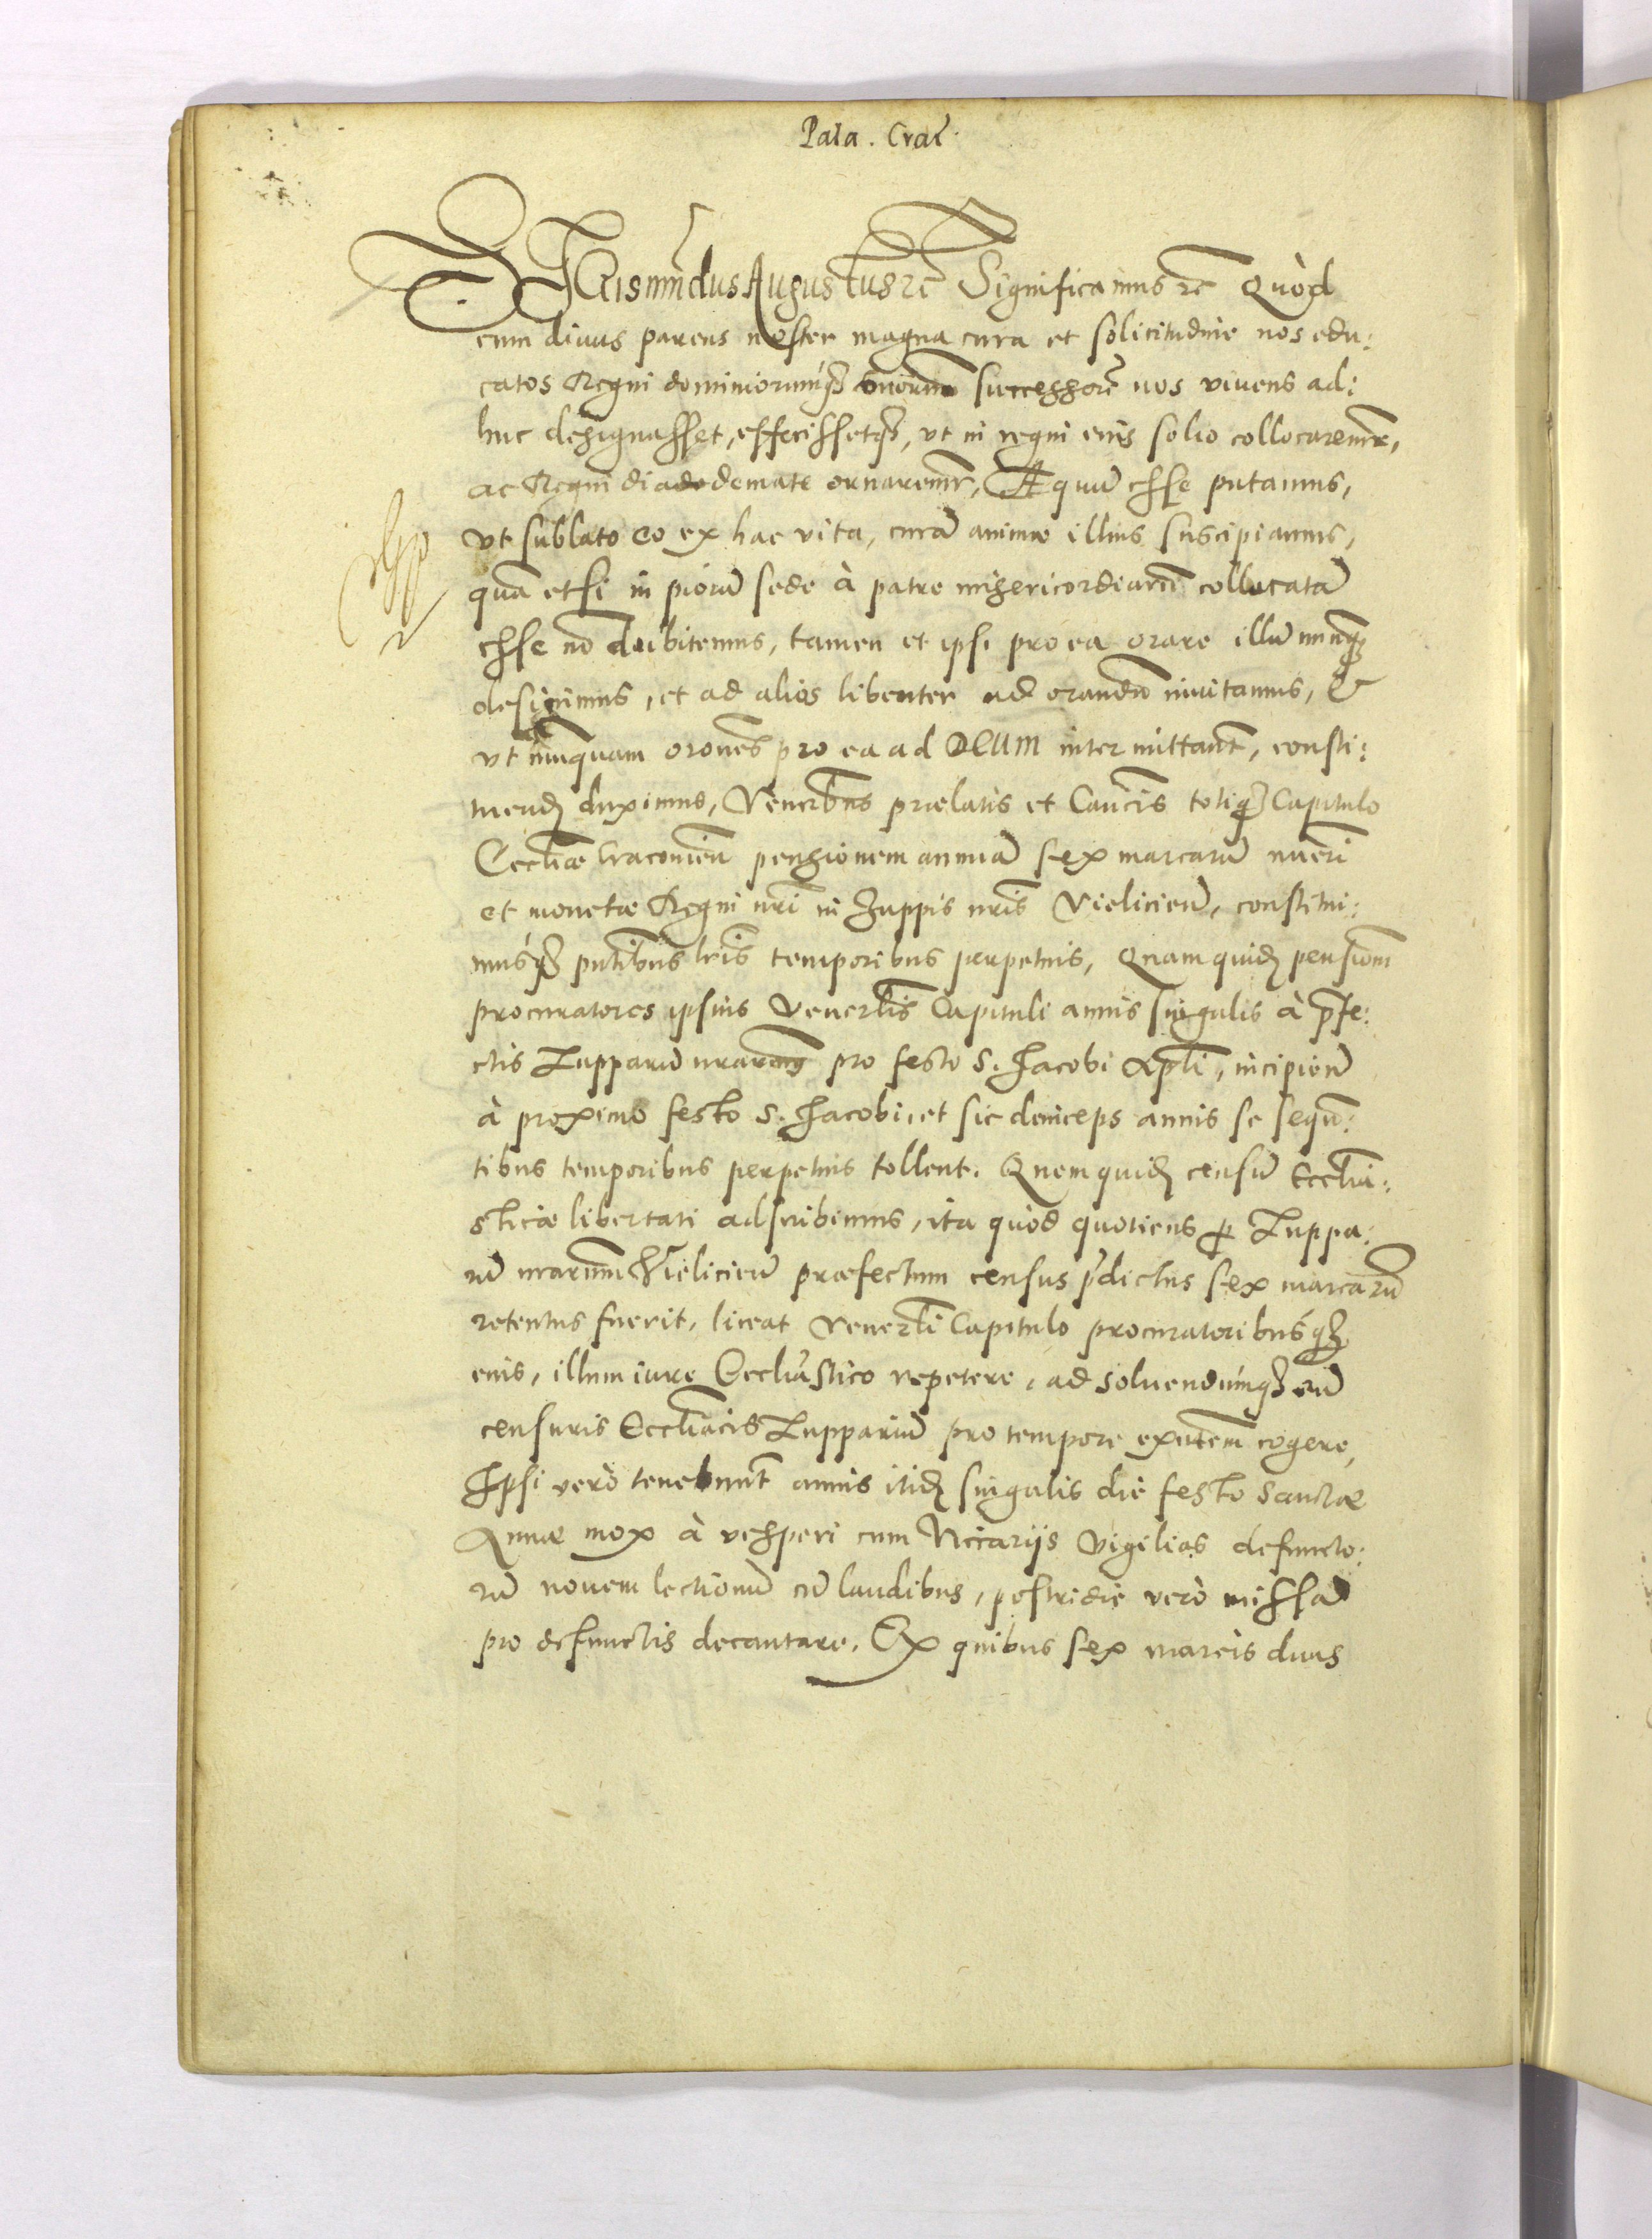 Pala. Cral
SIGismūdus Augustus etc Significamus etc Quòd
cum diuus parens noster magna cura et solicitudine nos edu:
catos Regni dominiorumq́ʒ suorum successorē nos viuens ad:
huc designasset, effecissetqʒ, vt in regni eius solio collocaremur,
ac Regni diadedemate ornaremur, Æquū esse putamus,
vt sublato eo ex hac vita, curā animæ illius suscipiamus,
quā etsi in piorū sede à patre misericordiarū collocatā
esse nō dubitemus, tamen et ipsi pro ea orare illū nunqʒ
desinimus, et ad alios libenter ad orandū inuitamus, &
vt nunquam orones pro ea ad DEUM intermittant, consti:
tuendʒ duximus, Venerbus prælatis et Cancis totiqʒ Capitulo
Eccliæ Cracouien pensionem annuā sex marcarū nueri
et monetæ Regni nri in Zuppis nris Vieliciens, constitui:
musq́ʒ pntibus lris temporibus perpetuis, Quam quidʒ pensionem
procuratores ipsius Venerlis Capituli annis singulis à præfe:
ctis Zupparū nrarum pro festo S. Jacobi Apli, incipiend
à proximo festo S. Jacobi, et sic deinceps annis se sequen:
tibus temporibus perpetuis tollent. Quem quidʒ censū Ecclia:
sticæ libertati adscribimus, ita quòd quotiens per Zuppa:
rū nrarum Vieliciens præfectum census prædictus sex marcarū
retentus fuerit, liceat Venerli Capitulo procuratoribusq́ʒ
eius, illum iure Eccliastico repetere, ad soluendúmqʒ eum
censuris Ecclīacis Zupparium pro tempore exntem cogere,
Ipsi verò tenebunt annis itidʒ singulis die festo Sanctæ
Annæ mox à vesperi cum Vicarijs Vigilias defuncto:
rū nouem lectionū cū laudibus, postridie verò missā
pro defunctis decantare. Ex quibus sex marcis duas